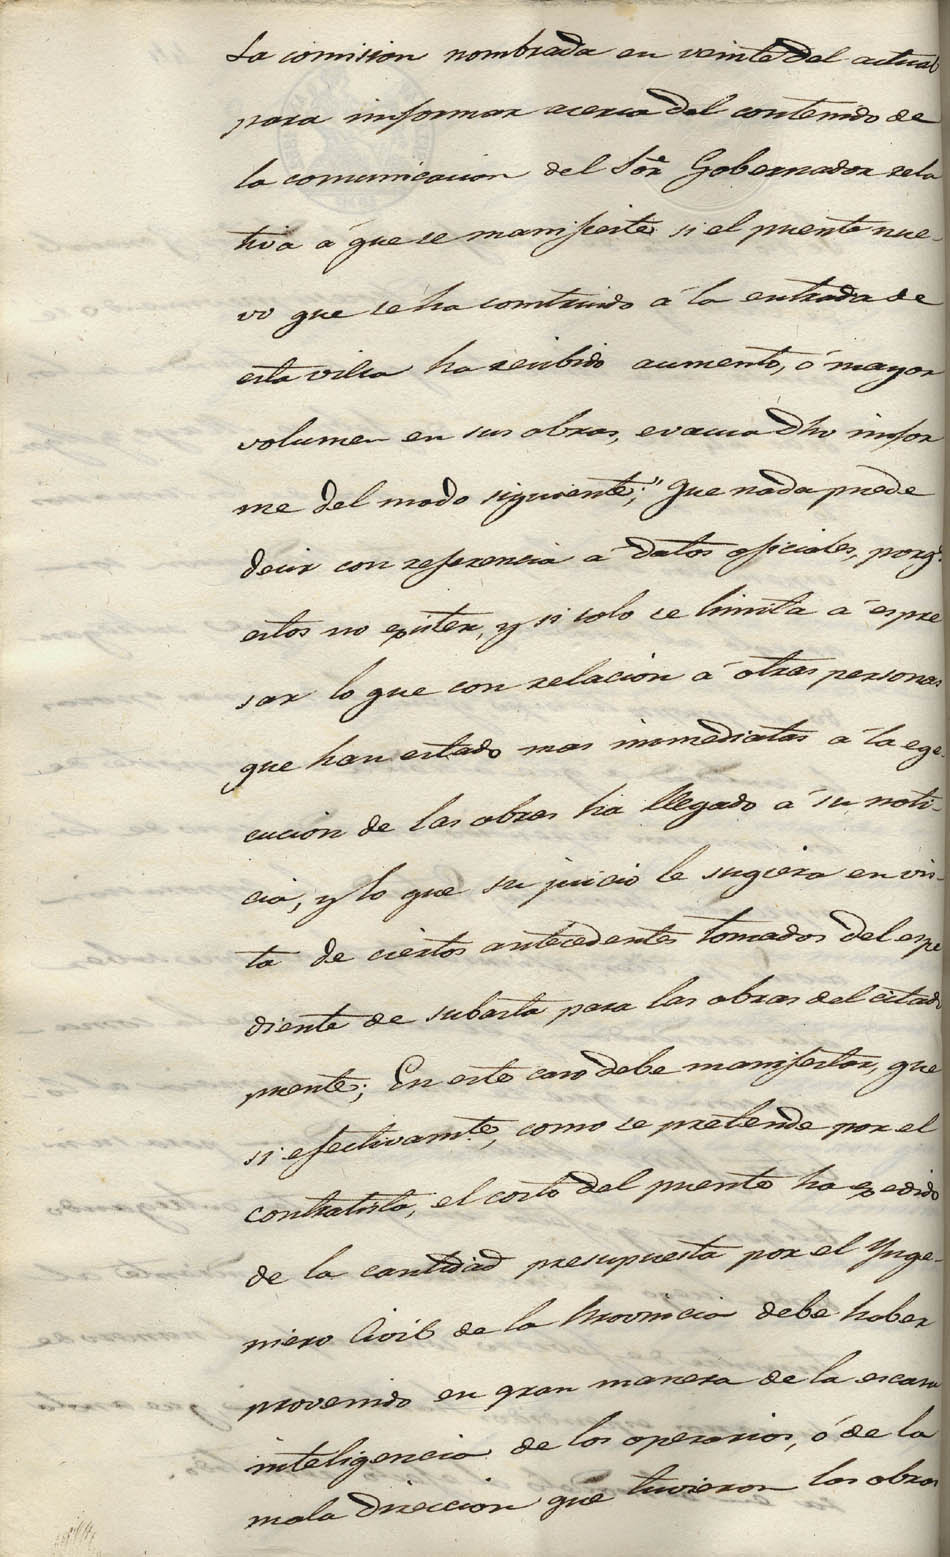 La comision nombrada en veinte del actual
para informar acerca del contenido de
la comunicacion del Sor. Gobernador rela
tiva á que se manifieste si el puente nue-
vo que se ha construido á la entrada de
esta villa ha recibido aumento, ó mayor
volumen en sus obras, evacua dho infor
me del modo siguiente; "Que nada puede
decir con referencia á datos oficiales, porq.
estos no existen, y si solo se limita á espre
sar lo que con relacion á otras personas
que han estado mas inmediatas á la ege-
cucion de las obras ha llegado á su noti-
cia, y lo que su juicio le sugiera en vis-
ta de ciertos antecedentes tomados del espe
diente de subasta para las obras del citado
puente; En este caso debe manifestar, que
si efectivamte, como se pretende por el
contratista, el costo del puente ha expedido
de la cantidad presupuesta por el Ynge-
niero Civil de la Provincia debe haber
provenido en gran manera de la escasa
inteligencia de los operarios, ó de la
mala direccion que tuvieron las obras